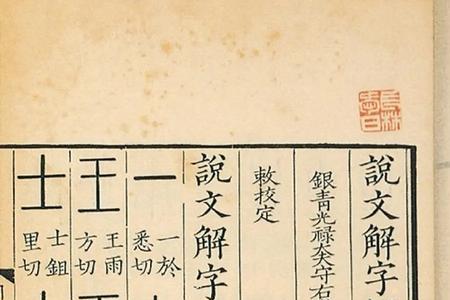 說文解字
銀青光祿大夫守右
敕校定
說文解字
一 一於悉切
王 王雨方切
士 士鉏里切